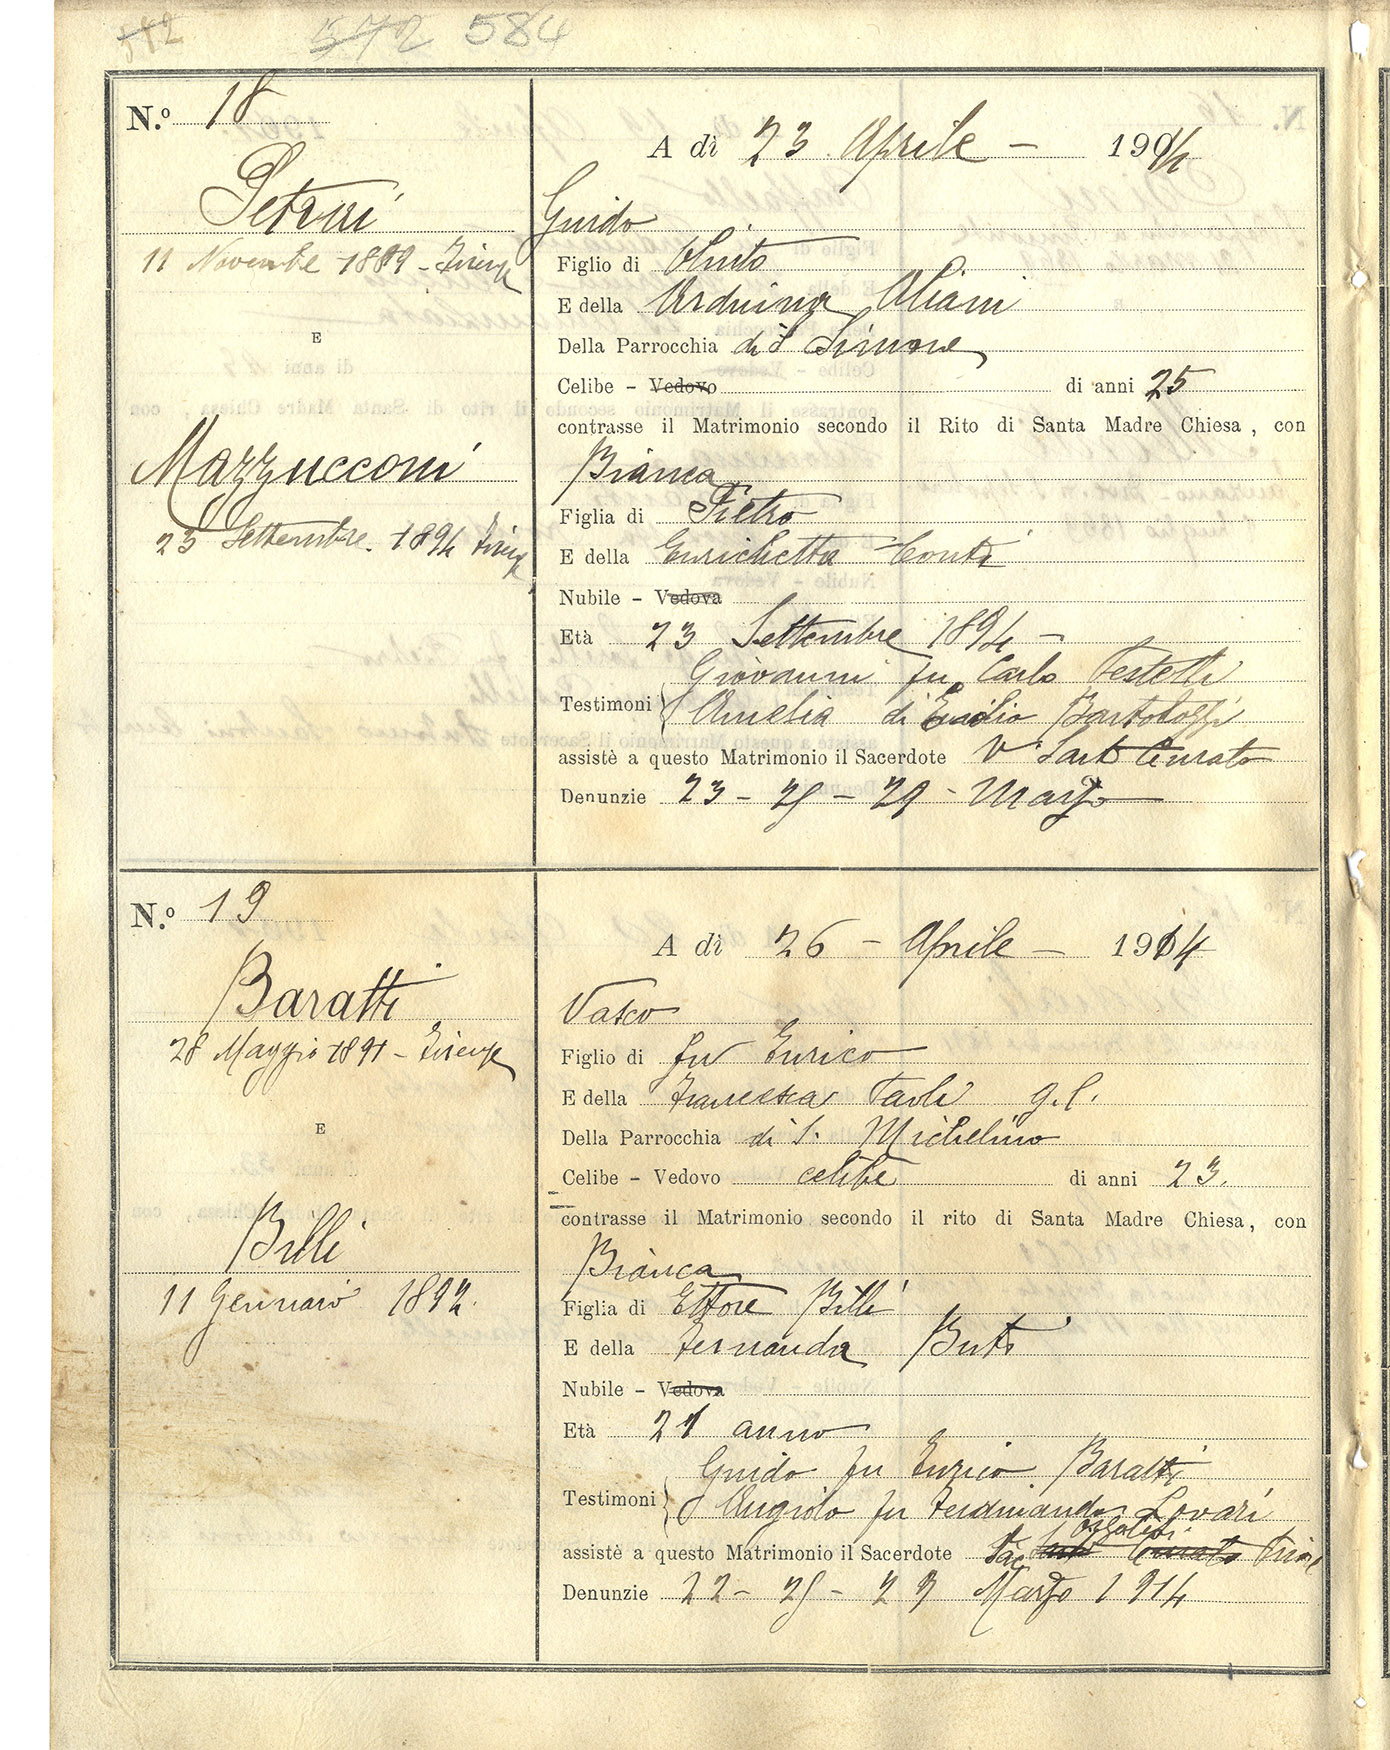 572 584
N.º 18
A dì 23 Aprile – 1914
Petrni
Guido
11 Novembre 1889 - Firenze
Figlio di
E della Arduina Aliani
E
Della Parrocchia di S Simone
Celibe - Vedovo di anni 25
contrasse il Matrimonio secondo il Rito di Santa Madre Chiesa, con
Mazzucconi
Bianca
Figlia di Pietro
23 Settembre 1894 Firenze
E della Enrichetta Conti
Nubile - Vedova
Età 23 Settembre 1894 –
Testimoni { Giovanni fu Carlo Testelli
Amelia di Emilio Bartolozzi
assistè a questo Matrimonio il Sacerdote Curato
Denunzie 23 - 25 - 29 - Marzo
N.º 19
A dì 26 – Aprile – 1914
Baratti
Vasco
28 Maggio 1891 - Firenze
Figlio di fu Enrico
E della Francesca Paoli g.l.
E
Della Parrocchia di S. Michelino
Celibe - Vedovo celibe di anni 23.
contrasse il Matrimonio secondo il rito di Santa Madre Chiesa, con
Billi
Bianca
11 Gennaio 1892.
Figlia di Ettore Billi
E della Fernanda Buti
Nubile - Vedova
Età 21 anno
Testimoni { Guido fu Enrico Baratti
Angiolo fu Ferdinando Lovari
assistè a questo Matrimonio il Sacerdote Curato
Denunzie 22 - 25 - 29 Marzo 1914